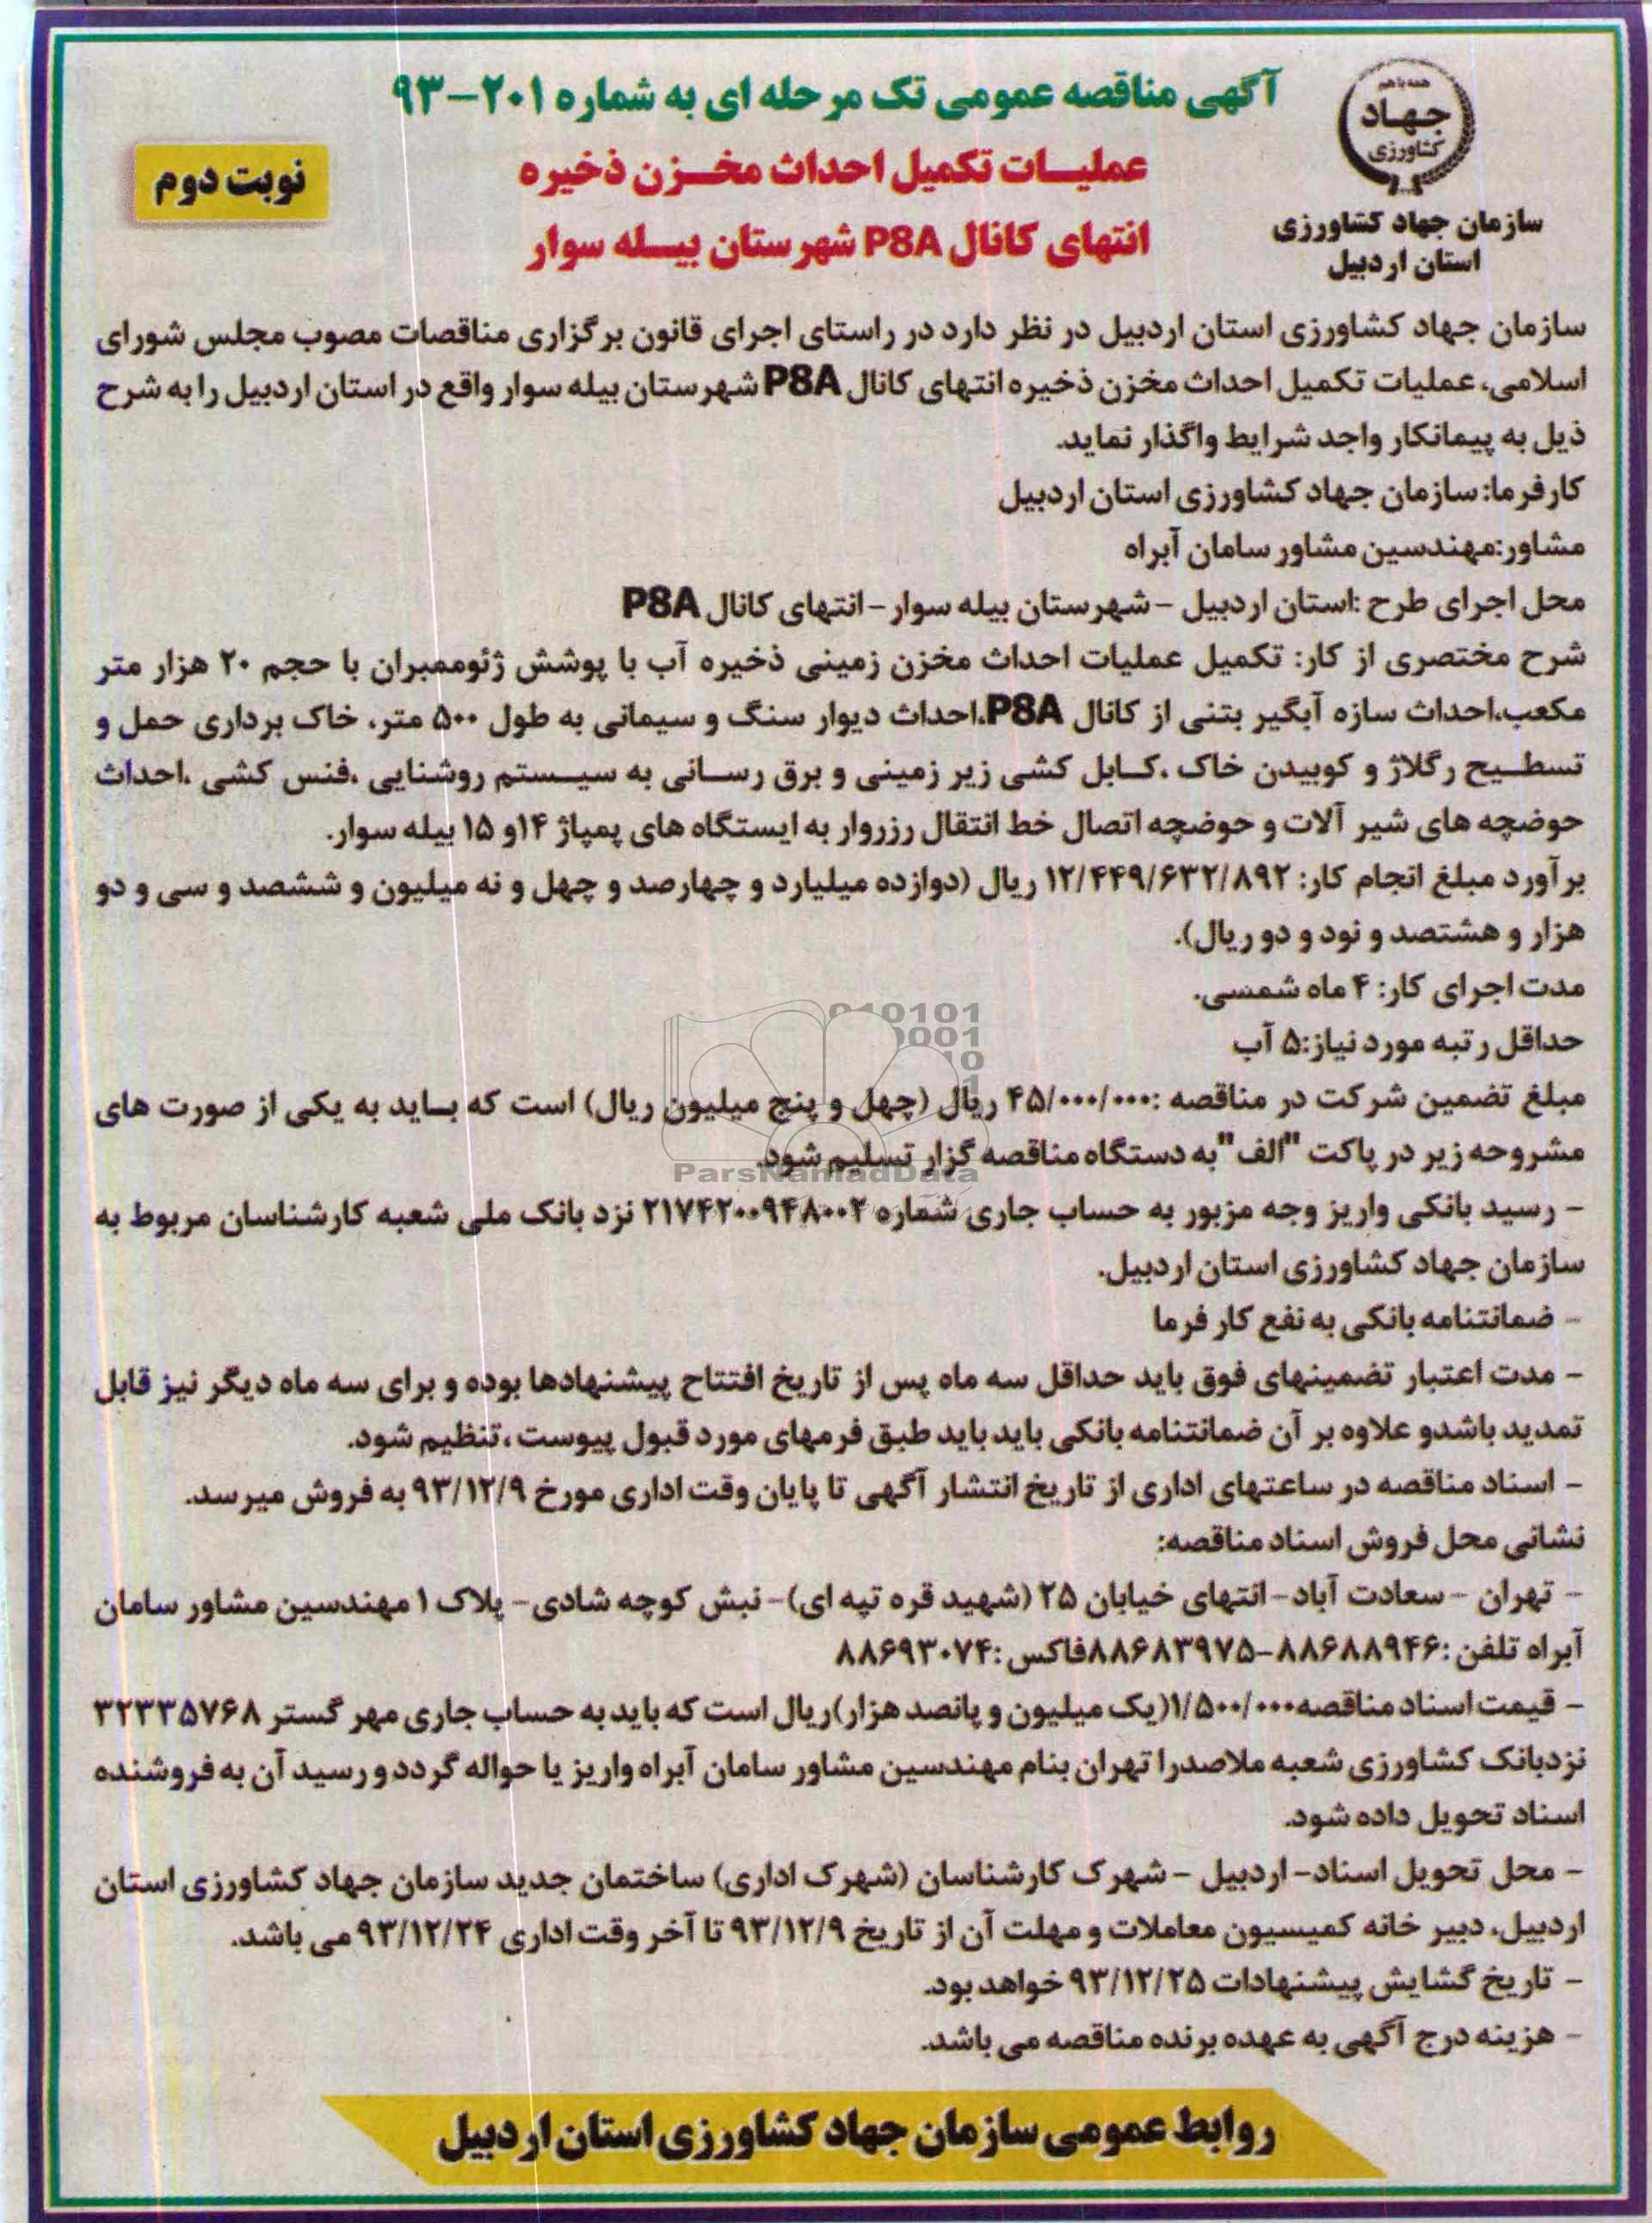 همه با هم
جهاد
کشاورزی
سازمان جهاد کشاورزی
استان اردبیل
آگهی مناقصه عمومی تک مرحله ای به شماره ۲۰۱-۹۳
عملیات تکمیل احداث مخزن ذخیره
انتهای کانال P8A شهرستان بیله سوار
نوبت دوم
سازمان جهاد کشاورزی استان اردبیل در نظر دارد در راستای اجرای قانون برگزاری مناقصات مصوب مجلس شورای
اسلامی، عملیات تکمیل احداث مخزن ذخیره انتهای کانال P8A شهرستان بیله سوار واقع در استان اردبیل را به شرح
ذیل به پیمانکار واجد شرایط واگذار نماید.
کارفرما: سازمان جهاد کشاورزی استان اردبیل
مشاور:مهندسین مشاور سامان آبراه
محل اجرای طرح :استان اردبیل - شهرستان بیله سوار - انتهای کانال P8A
شرح مختصری از کار: تکمیل عملیات احداث مخزن زمینی ذخیره آب با پوشش ژئوممبران با حجم ۲۰ هزار متر
مکعب،احداث سازه آبگیر بتنی از کانال P8A،احداث دیوار سنگ و سیمانی به طول ۵۰۰ متر، خاک برداری حمل و
تسطیح رگلاژ و کوبیدن خاک ،کابل کشی زیر زمینی و برق رسانی به سیستم روشنایی ،فنس کشی ،احداث
حوضچه های شیر آلات و حوضچه اتصال خط انتقال رزروار به ایستگاه های پمپاژ ۱۴و ۱۵ بیله سوار.
برآورد مبلغ انجام کار: ۱۲/۴۴۹/۶۳۲/۸۹۲ ریال (دوازده میلیارد و چهارصد و چهل و نه میلیون و ششصد و سی و دو
هزار و هشتصد و نود و دو ریال).
مدت اجرای کار: ۴ ماه شمسی.
حداقل رتبه مورد نیاز:۵ آب
مبلغ تضمین شرکت در مناقصه :۴۵/۰۰۰/۰۰۰ ریال (چهل و پنج میلیون ریال) است که باید به یکی از صورت های
مشروحه زیر در پاکت "الف" به دستگاه مناقصه گزار تسلیم شود.
- رسید بانکی واریز وجه مزبور به حساب جاری شماره ۲۱۷۴۲۰۰۹۴۸۰۰۲ نزد بانک ملی شعبه کارشناسان مربوط به
سازمان جهاد کشاورزی استان اردبیل.
- ضمانتنامه بانکی به نفع کار فرما
- مدت اعتبار تضمینهای فوق باید حداقل سه ماه پس از تاریخ افتتاح پیشنهادها بوده و برای سه ماه دیگر نیز قابل
تمدید باشدو علاوه بر آن ضمانتنامه بانکی باید باید طبق فرمهای مورد قبول پیوست،تنظیم شود.
- اسناد مناقصه در ساعتهای اداری از تاریخ انتشار آگهی تا پایان وقت اداری مورخ ۹۳/۱۲/۹ به فروش میرسد.
نشانی محل فروش اسناد مناقصه:
- تهران - سعادت آباد - انتهای خیابان ۲۵ (شهید قره تپه ای)- نبش کوچه شادی - پلاک ۱ مهندسین مشاور سامان
آبراه تلفن :۸۸۶۸۸۹۴۶-۸۸۶۸۳۹۷۵فاکس :۸۸۶۹۳۰۷۴
- قیمت اسناد مناقصه۱/۵۰۰/۰۰۰(یک میلیون و پانصد هزار)ریال است که باید به حساب جاری مهر گستر ۳۲۳۳۵۷۶۸
نزدبانک کشاورزی شعبه ملاصدرا تهران بنام مهندسین مشاور سامان آبراه واریز یا حواله گردد و رسید آن به فروشنده
اسناد تحویل داده شود.
- محل تحویل اسناد- اردبیل - شهرک کارشناسان (شهرک اداری) ساختمان جدید سازمان جهاد کشاورزی استان
اردبیل، دبیر خانه کمیسیون معاملات و مهلت آن از تاریخ ۹۳/۱۲/۹ تا آخر وقت اداری ۹۳/۱۲/۲۴ می باشد.
- تاریخ گشایش پیشنهادات ۹۳/۱۲/۲۵ خواهد بود.
- هزینه درج آگهی به عهده برنده مناقصه می باشد.
روابط عمومی سازمان جهاد کشاورزی استان اردبیل
ParsNamadData